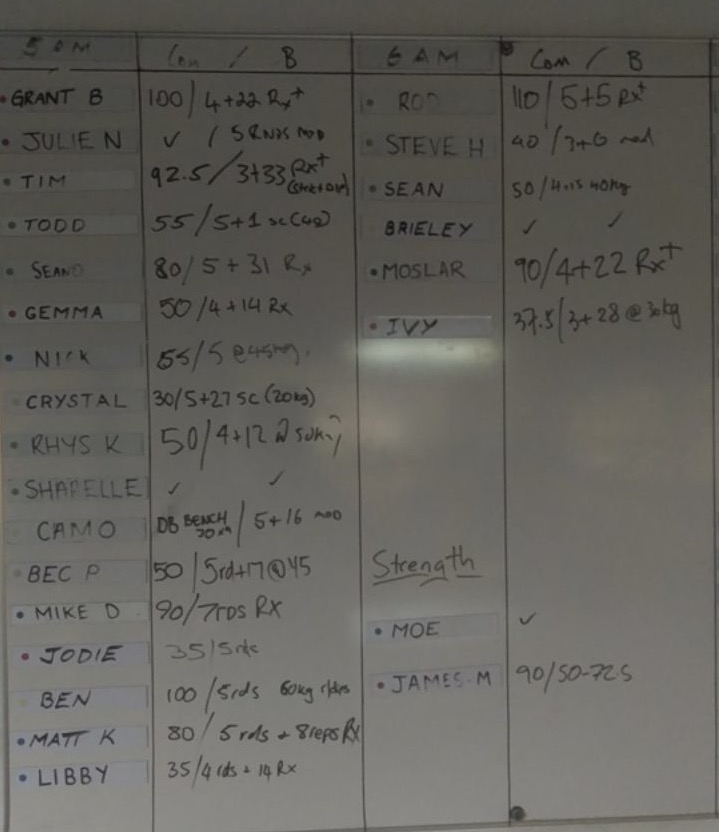 5 AM Com / B 6 AM Com / B
GRANT B 100 / 4+22 Rx+
JULIE N ✓ / 5 RNDS MOD
TIM 92.5 / 3+33 Rx+
TODD 55 / 5+1 sc (40)
SEAN 80 / 5 + 31 Rx
GEMMA 50 / 4 + 14 Rx
NICK 55 / 5 @45kg
CRYSTAL 30/5+27 SC (20kg)
RHYS K 50 / 4+12 @ 50kg
SHAPELLE ✓ ✓
CAMO DB BENCH / 5+16 MOD
BEC P 50 / 5rd+17 @45
MIKE D 90/7rds RX
JODIE 35/5rds
BEN 100 / 5rds 60kg
MATT K 80 / 5 rds + 8reps Rx
LIBBY 35/4 rds + 14 Rx
ROD 110 / 5+5 Rx+
STEVE H 40 / 3+6 mod
SEAN 50 / 4+15 40kg
BRIELEY ✓ ✓
MOSLAR 90/4+22 Rx+
IVY 37.5/3+28 @ 30kg
Strength
MOE ✓
JAMES.M 90/50-72.5